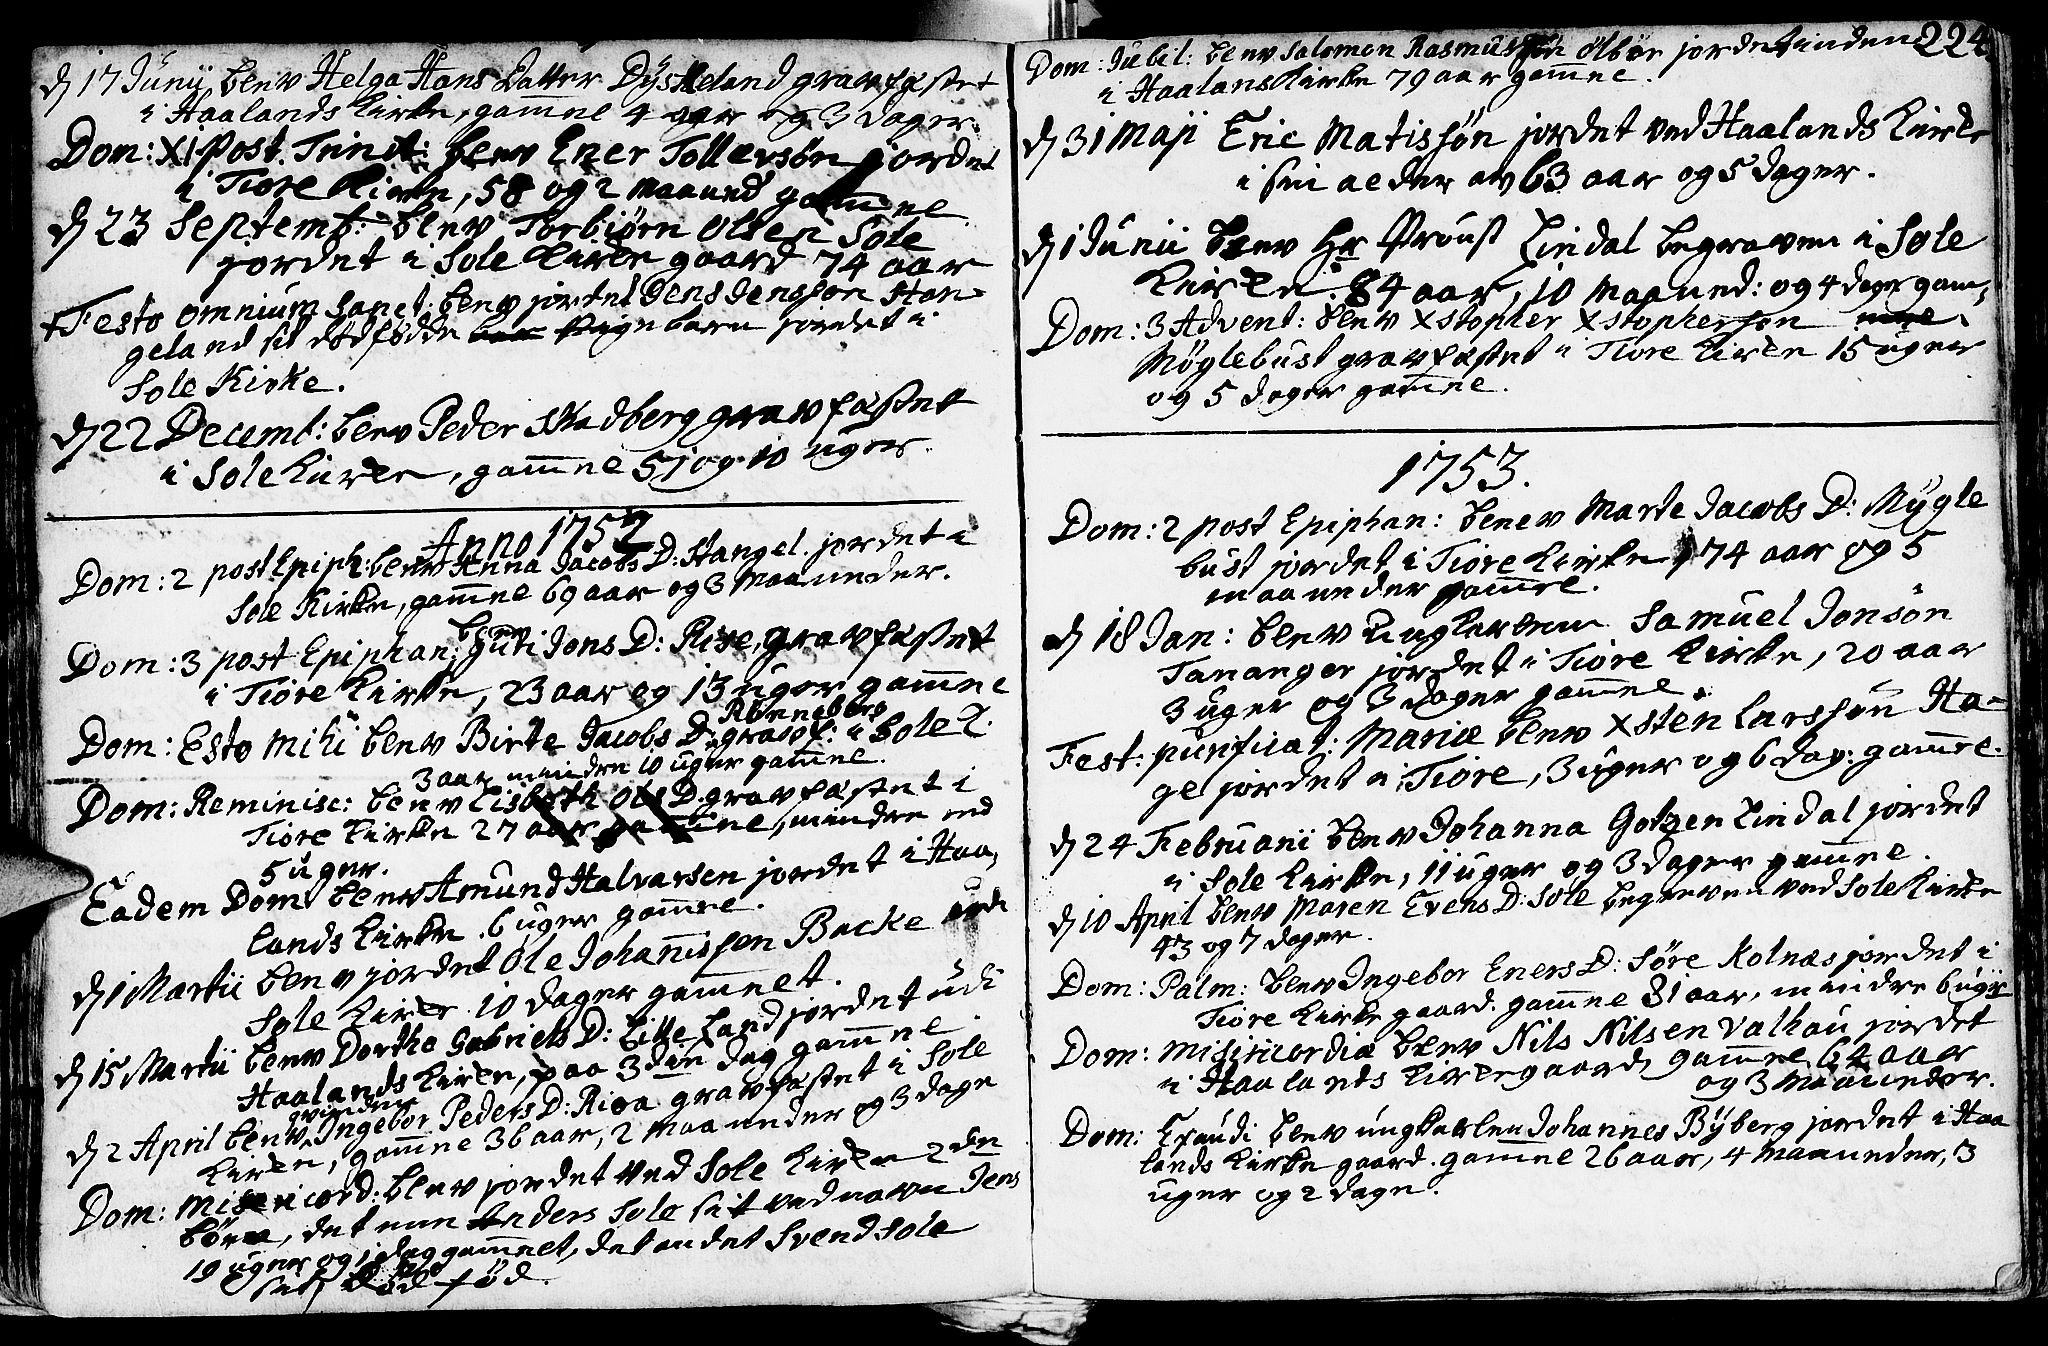 d 17 Junij blev Helga Hans Datter Dyskeland gravfæstet
i Haalands Kirke, gam̄ne 4 aar og 3 dager.
Dom: XI Post. Trinit: blev Ener Tollevsön jordet
i Tiore Kirke, 58 og 2 maaned gam̄ne
d 23 Septemb: blev Torbiörn Olsen Sole
jordet i Sole Kirke gaard 74 aar
+Festo omnium Sanct: blev jordet Jens Jensson Han-
geland sit dödfödde Pigebarn jordet i
Sole Kirke.
d 22 Decemb: blev Peder Skadberg gravfæstet
i Sole Kirke, gam̄ne 51 og 10 uger.
Anno 1752
Dom: 2 post Epiph: blev Anna Jacobs D: Hangel. jordet i
Sole Kirke, gam̄ne 69 aar og 3 Maaneder.
blev
Dom: 3 post Epiphan: Guri Jons D: Rise, gravfæstet
i Tiore Kirke, 23 aar og 13 uger gam̄ne
Renneberg
Dom: Esto mihi blev Birte Jacobs D: gravf: i Sole K.
3 aar mindre 10 uger gam̄ne.
Dom: Reminisc: blev Lisbeth Ols D. gravfæstet i
Tiore Kirke 27 aar gam̄ne, mindre end
5 uger.
Eadem Dom: blev Amund Halvarsen jordet i Haa-
lands Kirke. 6 uger gam̄ne.
d 1 Martii blev jordet Ole Johan̄issen Backe
Sole Kirke 10 dager gam̄net.
d 15 Martii blev Dorthe Gabriels D: Litle Land jordet udi
Haalands Kirke, paa 3die dag gam̄ne
qvinden
d 2 April blev Ingebor Peders D: Risa gravfæstet i Sole
Kirke, gam̄ne 36 aar, 2 Maaneder og 3 dage
Dom: Misericord: blev jordet ved Sole Kirke 2de
börn, det ene Anders Sole sit ved navn Jens
19 uger og 1 dag gam̄net, det andet Svend Sole
sit, död föd.
224
Dom: Jubil: blev Salomon Rasmussön Ölbör jordet inden
i Haalans Kirke 79 aar gam̄ne.
d 31 Maji Eric Matissön jordet ved Haalands Kirke
i sin alder av 63 aar og 5 dager.
d 1 Junii blev HrProust Lindal begraven i Sole
Kirke. 84 aar, 10 Maaned: og 4 dager gam-
Dom: 3 Advent: blev Xstopher Xstophersön mne.
Möglebust gravfæstet i Tiore Kirke 15 uger
og 5 dager gam̄ne.
1753.
Dom: 2 post Epiphan: blev Marte Jacobs D: Mygle
bust jordet i Tiore Kirke, 74 aar og 5
maaneder gam̄ne.
d 18 Jan: blev ungkarlen Samuel Jonsön
Tananger jordet i Tiore Kirke, 20 aar
3 uger og 3 dager gam̄ne.
Fest: purificat: Mariæ blev Xsten Larssön Ha-
ge jordet i Tiore, 3 uger og 6 dag: gam̄ne.
d 24 Februarii blev Johanna Gotzen Lindal jordet
i Sole Kirke, 11 uger og 3 dager gam̄ne.
d 10 April blev Maren Evens D: Sole begraven ved Sole Kirke
43 og 7 dager.
Dom: Palm: blev Ingebor Eners D: Söre Kolnæs jordet i
Tiore Kirke gaard. gam̄ne 81 aar, mindre 6 uger
Dom: Misiricordia blev Nils Nilsen Valhau jordet
i Haalands Kirkegaard, gam̄ne 64 aar
og 3 Maaneder.
Dom: Exaudi blev ungkarlen Johannes Byberg jordet i Haa
lands Kirke gaard. gam̄ne 26 aar, 4 Maaneder, 3
uger og 2 dage.